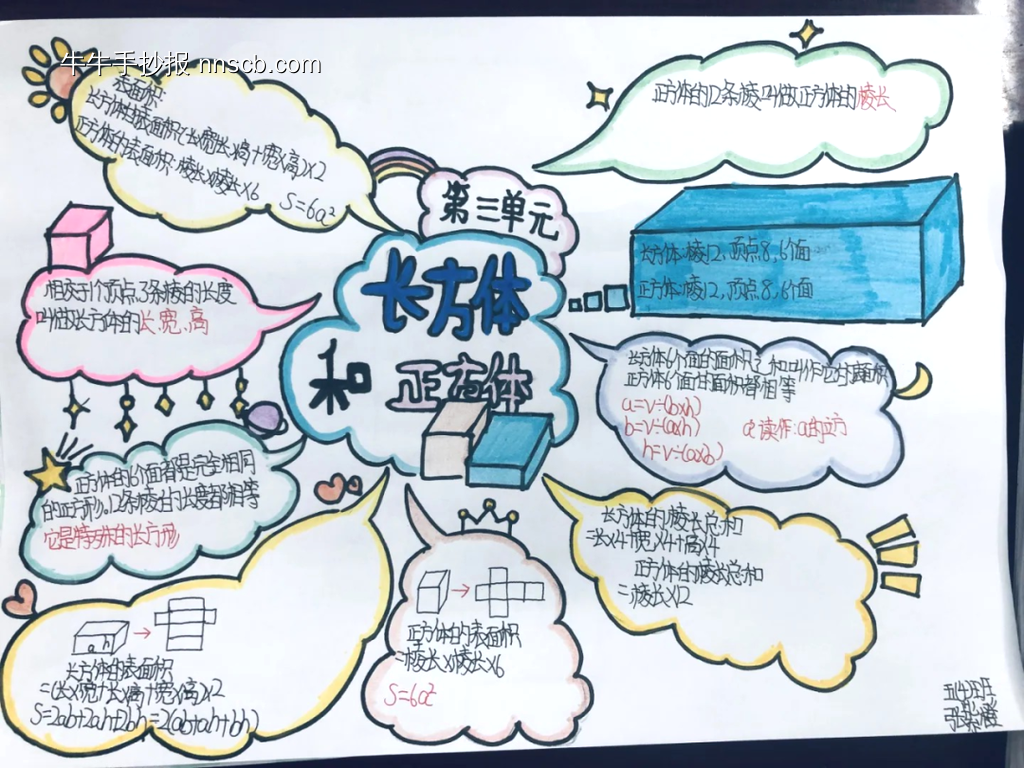 牛牛手抄报 nnscb.com
表面积:
长方体的表面积:(长×宽+长×高+宽×高)×2
正方体的表面积:棱长×棱长×6 S=6a²
正方体的12条棱叫做正方体的棱长
第三单元
长方体
和 正方体
长方体:棱12、顶点8、6个面
正方体:棱12、顶点8、6个面
相交于1个顶点、3条棱的长度
叫做长方体的长、宽、高
长方体6个面的面积之和叫作它的表面积
正方体6个面的面积都相等
a=v÷(b×h)
b=v÷(a×h) a³读作:a的立方
h=v÷(a×b)
正方体的6个面都是完全相同
的正方形。12条棱的长度都相等
它是特殊的长方形
长方体的棱长总和
=长×4+宽×4+高×4
正方体的棱长总和
=棱长×12
长方体的表面积
=(长×宽+长×高+宽×高)×2
S=2ab+2ah+2bh=2(ab+ah+bh)
正方体的表面积
=棱长×棱长×6
S=6a²
五4班